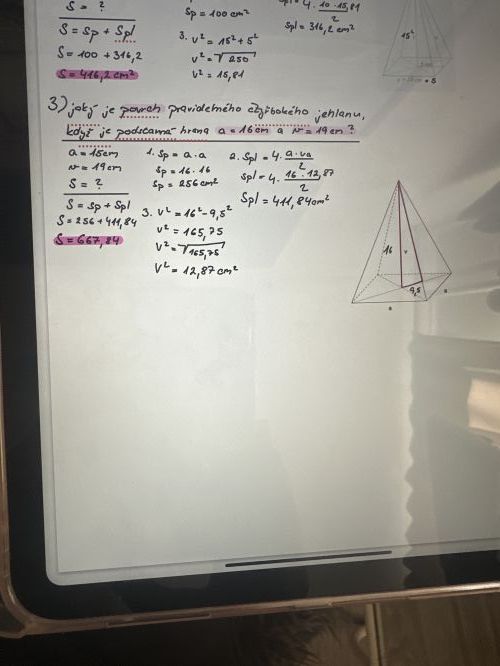 S = ?
S = Sp + Spl
S = 100 + 316,2
S = 416,2 cm²
Sp = 100 cm²
3. v² = 15² + 5²
v² = √250
v² = 15,81
Spl = 4 . 10 . 15,81
2
Spl = 316,2 cm²
15²
3.) jaký je povrch pravidelného čtyřbokého jehlanu,
když je podstavná hrana a = 16 cm a v = 19 cm ?
a = 15 cm
v = 19 cm
S = ?
S = Sp + Spl
S = 256 + 411,84
S = 667,84
1. Sp = a . a
Sp = 16 . 16
Sp = 256 cm²
2. Spl = 4 . a . va
2
Spl = 4 . 16 . 12,87
2
Spl = 411,84 cm²
3. v² = 16² - 9,5²
v² = 165,75
v² = √165,75
v² = 12,87 cm²
16
v
9,5
a
a